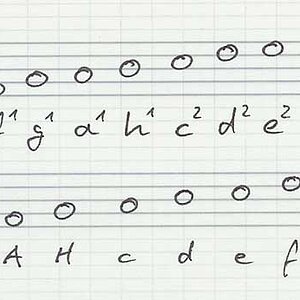 g¹ a¹ h¹ c² d² e²
A H c d e f